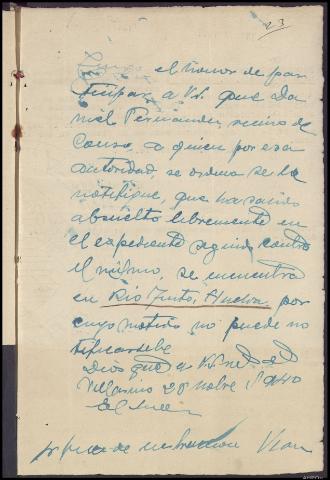 23
Tengo el honor de par
ticipar a Vd. que Da
niel Fernandez, vecino de
Couso, a quien por esa
autoridad, se ordena se le
notifique, que ha salido
absuelto libremente en
el expediente seguido contra
el mismo, se encuentra
en Rio Tinto, Huelva por
cuyo motivo no puede no
tificarsele
Dios gue a Vd
28 Nobre 1940
El Juez